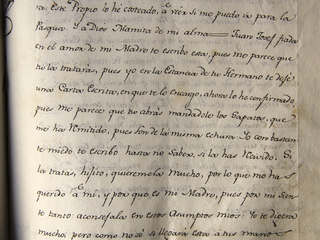 ra. Este Propio lo hé costeado, á ver si me puedo ir para la
Pasqua. Y a Dios Mamita de mi alma Juan Josef fiada
en el amor de mi Madre te escribo esta, pues me parece que
ni la tratarás, pues yo en la Estancia de tu Hermano te dejé
una Carta Escrita, en que te lo encargo, ahora lo he confirmado
pues me parece que tu abrás mandadolo los Sapatos, que
me ha Remitido, pues son de la misma echura. Yo con bastan
te miedo te escribo hasta no Saber, si la has Ravido. Si
la tratas, hijito, quieremela mucho, por lo que ha
querido á mi, y por que es mi Madre, pues por mi Sien-
te tanto aconsejala en estos Asumptos mios. Yo te digera
mucho, pero como no sé si llegará esta a tus manos